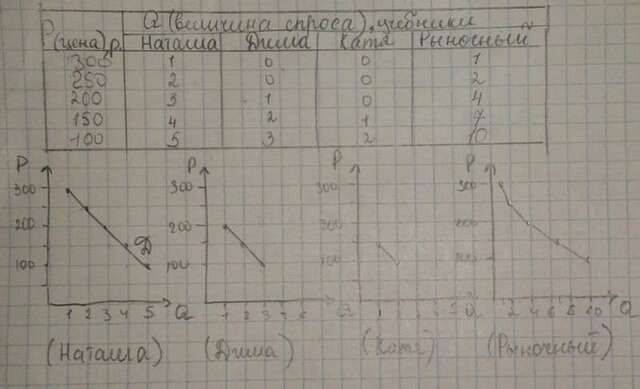 Q (величина спроса), учебники
P (цена), р. Наташа Дима Катя Рыночный
300 1 0 0 1
250 2 0 0 2
200 3 1 0 4
150 4 2 1 7
100 5 3 2 10
P P P P
300 300 300 300
200 200 200 200
Д
100 100 100 100
1 2 3 4 5 Q 1 2 3 4 5 6 Q 1 Q 2 4 6 8 10 Q
(Наташа) (Дима) (Катя) (Рыночный)